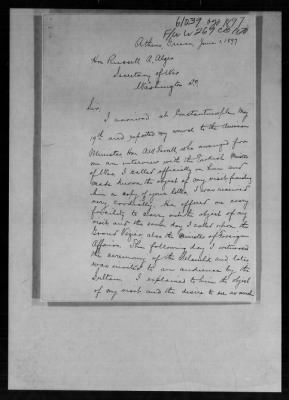 61039 AGO 1897
Athens, Greece June 1, 1897
Hon Russell A. Alger
Secretary of War
Washington D.C.
Sir,
I arrived at Constantinople May
19th and reported my arrival to the American
Minister, Hon. who arranged for
me an interview with the Turkish Minister
of War. I called officially on him and
made known the object of my visit handing
him a copy of your letter. I was received
very cordially. He offered me every
facility to carry out the object of my
visit and the same day I called upon the
Grand Vizier also the Minister of Foreign
Affairs. The following day I witnessed
the ceremony of the Selamlik and later
was invited to an audience by the
Sultan. I explained to him the object
of my visit and the desire to see as much